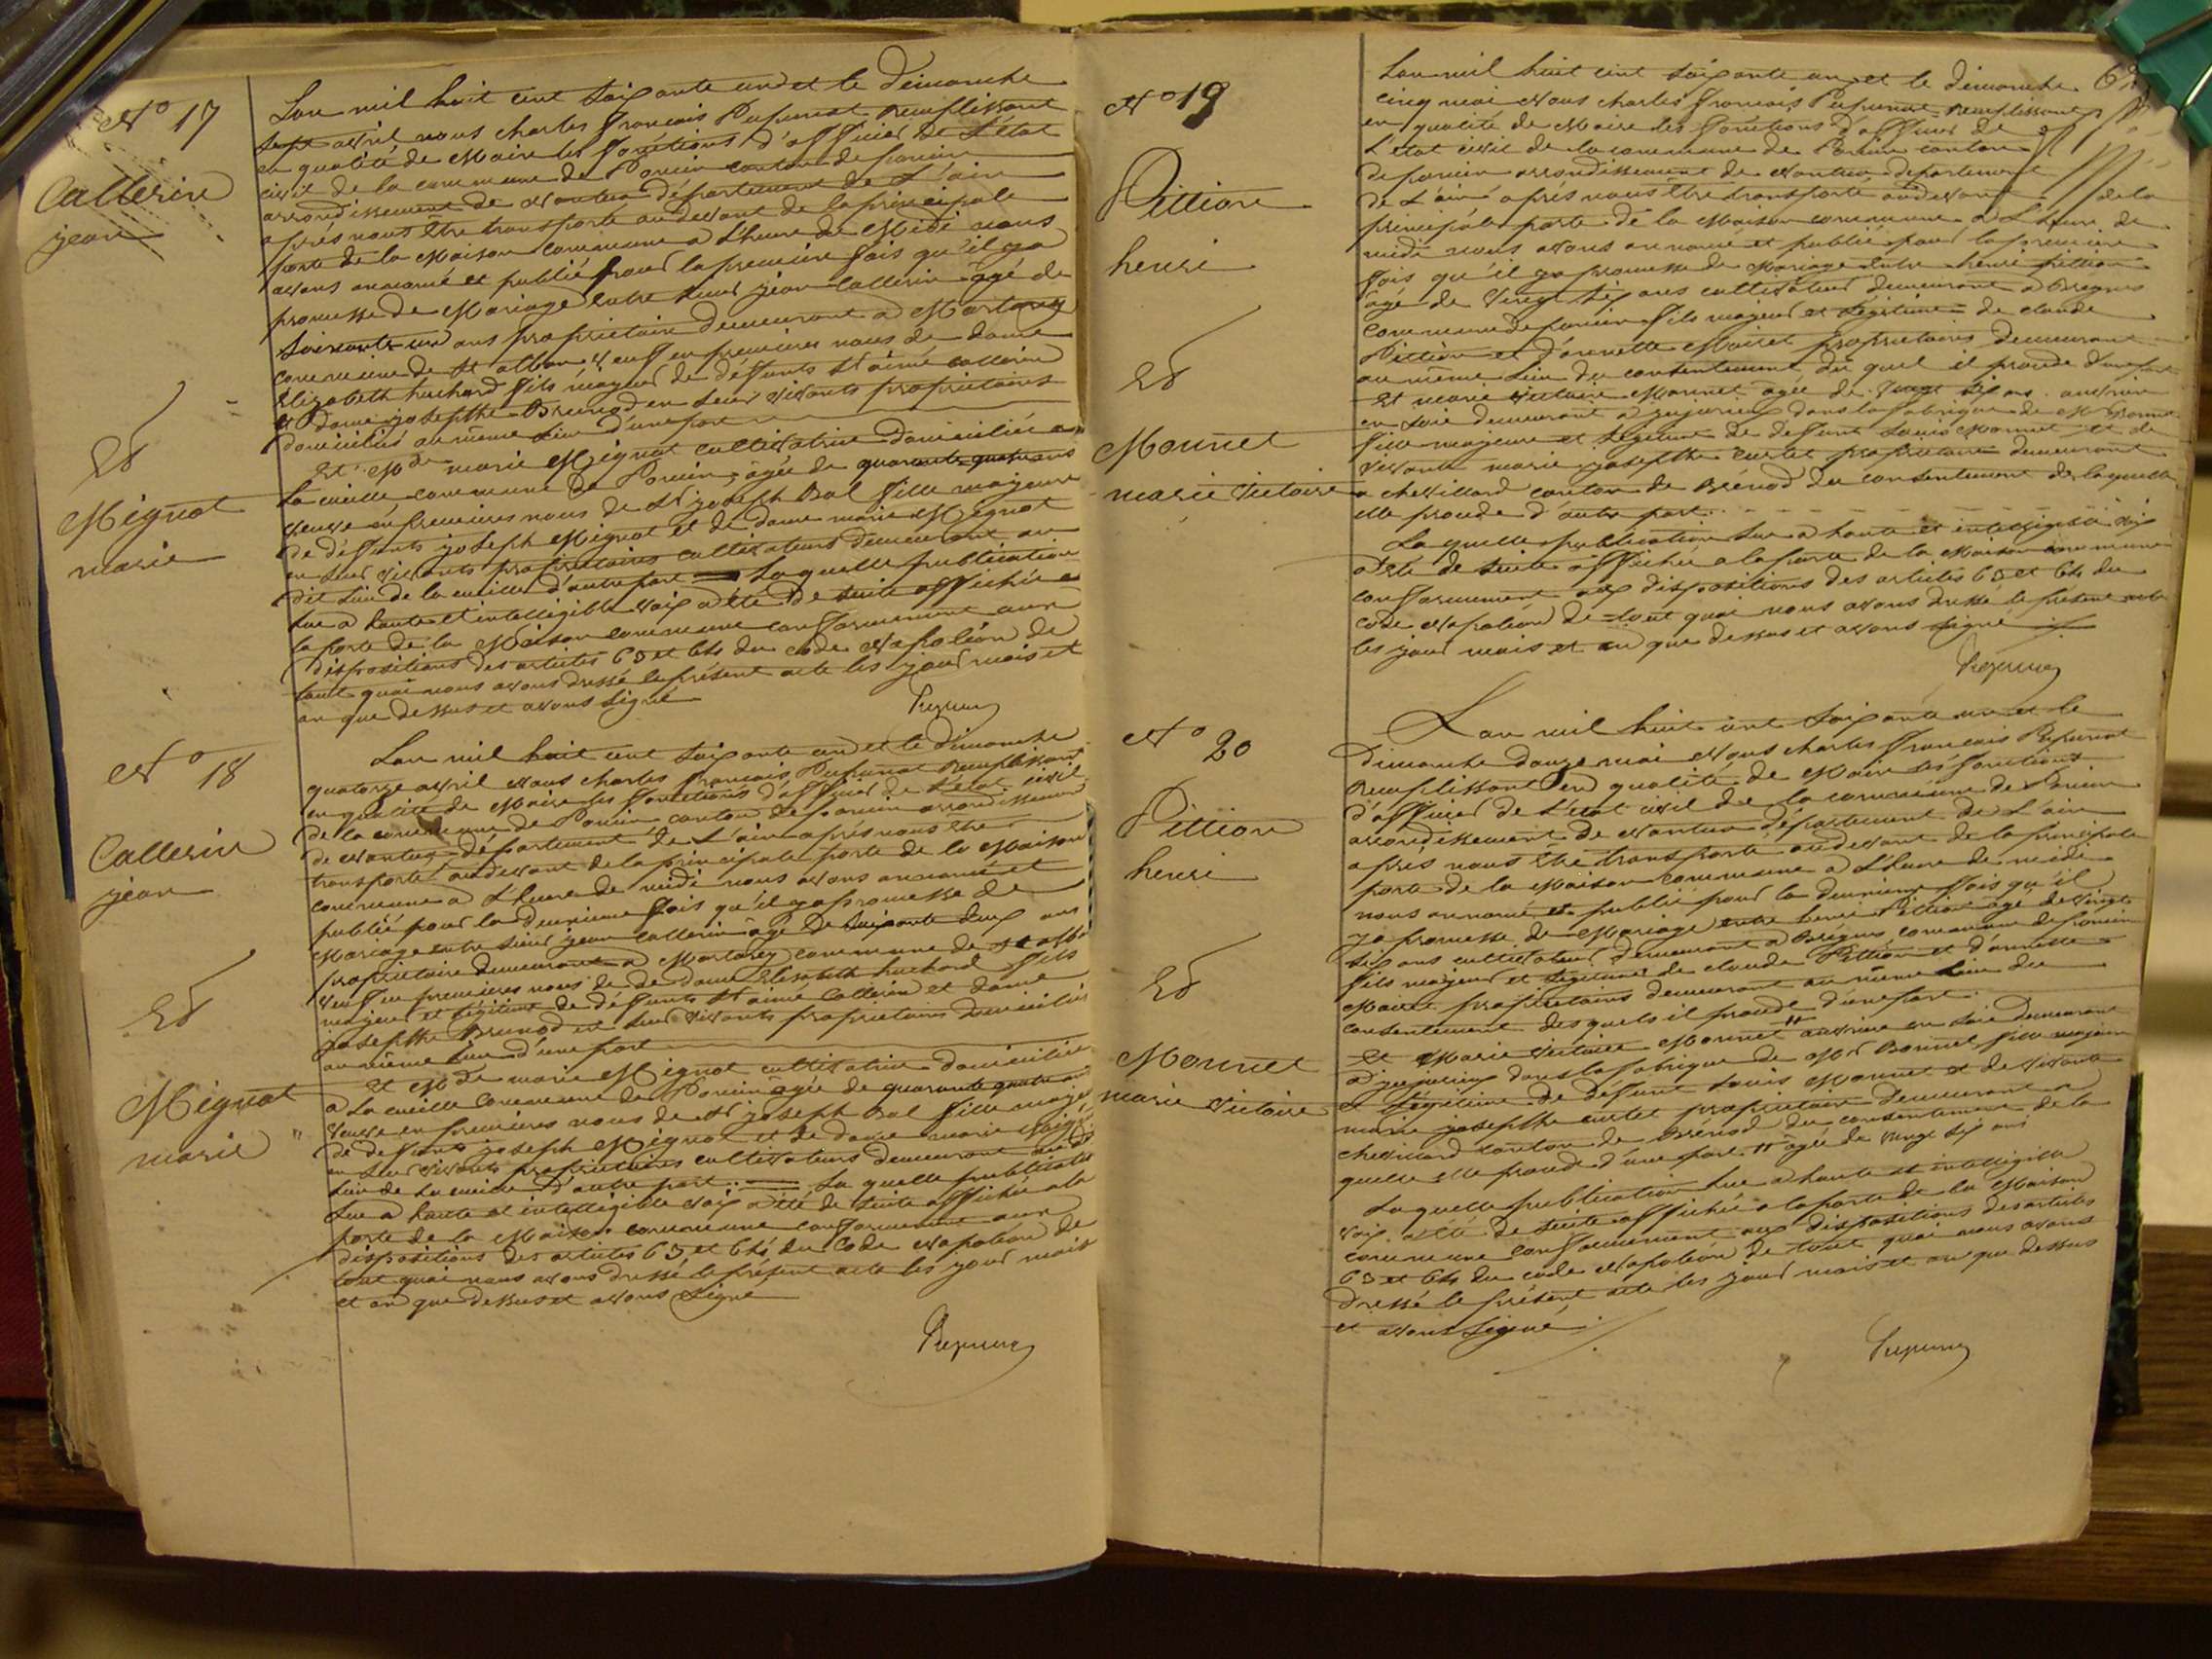 N° 17
Callerin
jean
Et
Mignot
marie
L'an mil huit cent soixante un et le Dimanche
sept avril nous charles francois Pupunat Remplissant
en qualité de Maire les fonctions d'officier de L'état
civil de la commune de Poncin canton de poncin
arrondissement de Nantua département de L'ain
après nous être transporté au devant de la principale
porte de la Maison commune a L'heure de Midi nous
avons annoncé et publié pour la première fois qu'il y a
promesse de Mariage entre sieur jean Callerin âgé de
soixante un ans propriétaire demeurant a Martarey
commune de St alban veuf en premieres noces de dame
Elizabeth huchard fils majeur de défunts St aimé Callerin
et Dame josephte Brunod en leurs vivants propriétaires
domiciliés au même lieu d'une part
Et Mde marie Mignot cultivatrice domiciliée a
La cueille commune de Poncin, âgée de quarante quatre ans
veuve en premieres noces de Sr joseph Bal fille majeure
de défunts joseph Mignot et de dame marie Mignot
en leur vivants propriétaires cultivateurs demeurant au
dit lieu de la cueille d'autre part Laquelle publication
lue a haute et intelligible voix a été de suite affichée a
la porte de la Maison commune conformément aux
dispositions des articles 63 et 64 du code Napoléon de
tout quoi nous avons dressé le présent acte les jour mois et
an que dessus et avons signé
Pupunat
N° 18
Callerin
jean
Et
Mignat
marie
L'an mil huit cent soixante un et le Dimanche
quatorze avril nous charles francois Pupunat Remplissant
en qualité de Maire les fonctions d'officier de L'état civil
de la commune de Poncin canton de poncin arrondissement
de Nantua département de L'ain après nous être
transporté au devant de la principale porte de la Maison
commune a L'heure de midi nous avons annoncé et
publié pour la deuxieme fois qu'il y a promesse de
Mariage entre sieur jean Callerin âgé de soixante deux ans
propriétaire demeurant a Martarey commune de St alba
veuf en premieres noces de de dame Elisabeth huchard fils
majeur et légitime de défunts St aimé Callerin et dame
josephte Brunod en leur vivants propriétaires domiciliés
au même lieu d'une part
Et Mde marie Mignot cultivatrice domiciliée
a La cueille commune de Poncin âgée de quarante quatre ans
veuve en premieres noces de Sr joseph Bal fille maje
de défunts joseph Mignot et de dame marie Mig
en leur vivants propriétaires cultivateurs demeurant au dit
lieu de La cueille d'autre part. La quelle publication
lue a haute et intelligible voix a été de suite affichée a la
porte de la Maison commune conformément aux
dispositions des articles 63 et 64 du Code Napoléon de
tout quoi nous avons dressé le présent acte les jour mois
et an que dessus et avons signé
Pupunat
N° 19
Pittion
henri
Et
Monnet
marie Victoire
L'an mil huit cent soixante un et le dimanche
cinq mai Nous charles francois Pupunat remplissant
en qualité de Maire les fonctions d'officier de
L'état civil de la commune de Poncin canton
de poncin arrondissement de Nantua département
de L'ain après nous être transporté au devant de la
principale porte de la Maison commune a L'heure de
midi nous avons annoncé et publié pour la première
fois qu'il y a promesse de Mariage entre henri pittion
âgé de vingt six ans cultivateur demeurant a Breignes
commune de poncin fils majeur et légitime de claude
Pittion et d'annette Moiret propriétaires demeurant
au même lieu du consentement du quel il procède d'une part
Et marie Victoire Monnet âgée de vingt six ans ouvriere
en soie demeurant a jujurieux dans la fabrique de Mr Bonnet
fille majeure et légitime de defunt Louis Monnet et de
vivante marie josephte curtet propriétaire demeurant
a chevillard canton de Brénod du consentement de laquelle
elle procède d'autre part.
La quelle publication lue a haute et intelligible voix
a été de suite affichée a la porte de la Maison commune
conformément aux dispositions des articles 63 et 64 du
code Napoléon de tout quoi nous avons dressé le présent acte
les jour mois et an que dessus et avons signé
Pupunat
N° 20
Pittion
henri
Et
Monnet
marie Victoire
L'an mil huit cent soixante un et le
Dimanche douze mai Nous charles francois Pupunat
Remplissant en qualité de Maire les fonctions
d'officier de L'état civil de la commune de Poncin
arrondissement de Nantua département de L'ain
après nous être transporté au devant de la principale
porte de la Maison commune a L'heure de midi
nous annoncé et publié pour la deuxieme fois qu'il
y a promesse de Mariage entre henri Pittion âgé de vingt
six ans cultivateur demeurant a Breignes commune de poncin
fils majeur et légitime de claude Pittion et d'annette
Moiret propriétaires demeurant au même lieu du
consentement desquels il procède d'une part.
Et Marie Victoire Monnet " ouvrière en soie demeurant
a jujurieux dans la fabrique de Mr Bonnet, fille majeure
et légitime de défunt Louis Monnet et de vivante
marie josephte curtet propriétaire demeurant a
chevillard canton de Brénod du consentement de la
quelle elle procède d'une part. " âgée de vingt six ans
Laquelle publication lue a haute et intelligible
voix a été de suite affichée a la porte de la Maison
commune conformément aux dispositions des articles
63 et 64 du code Napoléon de tout quoi nous avons
dressé le présent acte les jour mois et an que dessus
et avons signé.
Pupunat